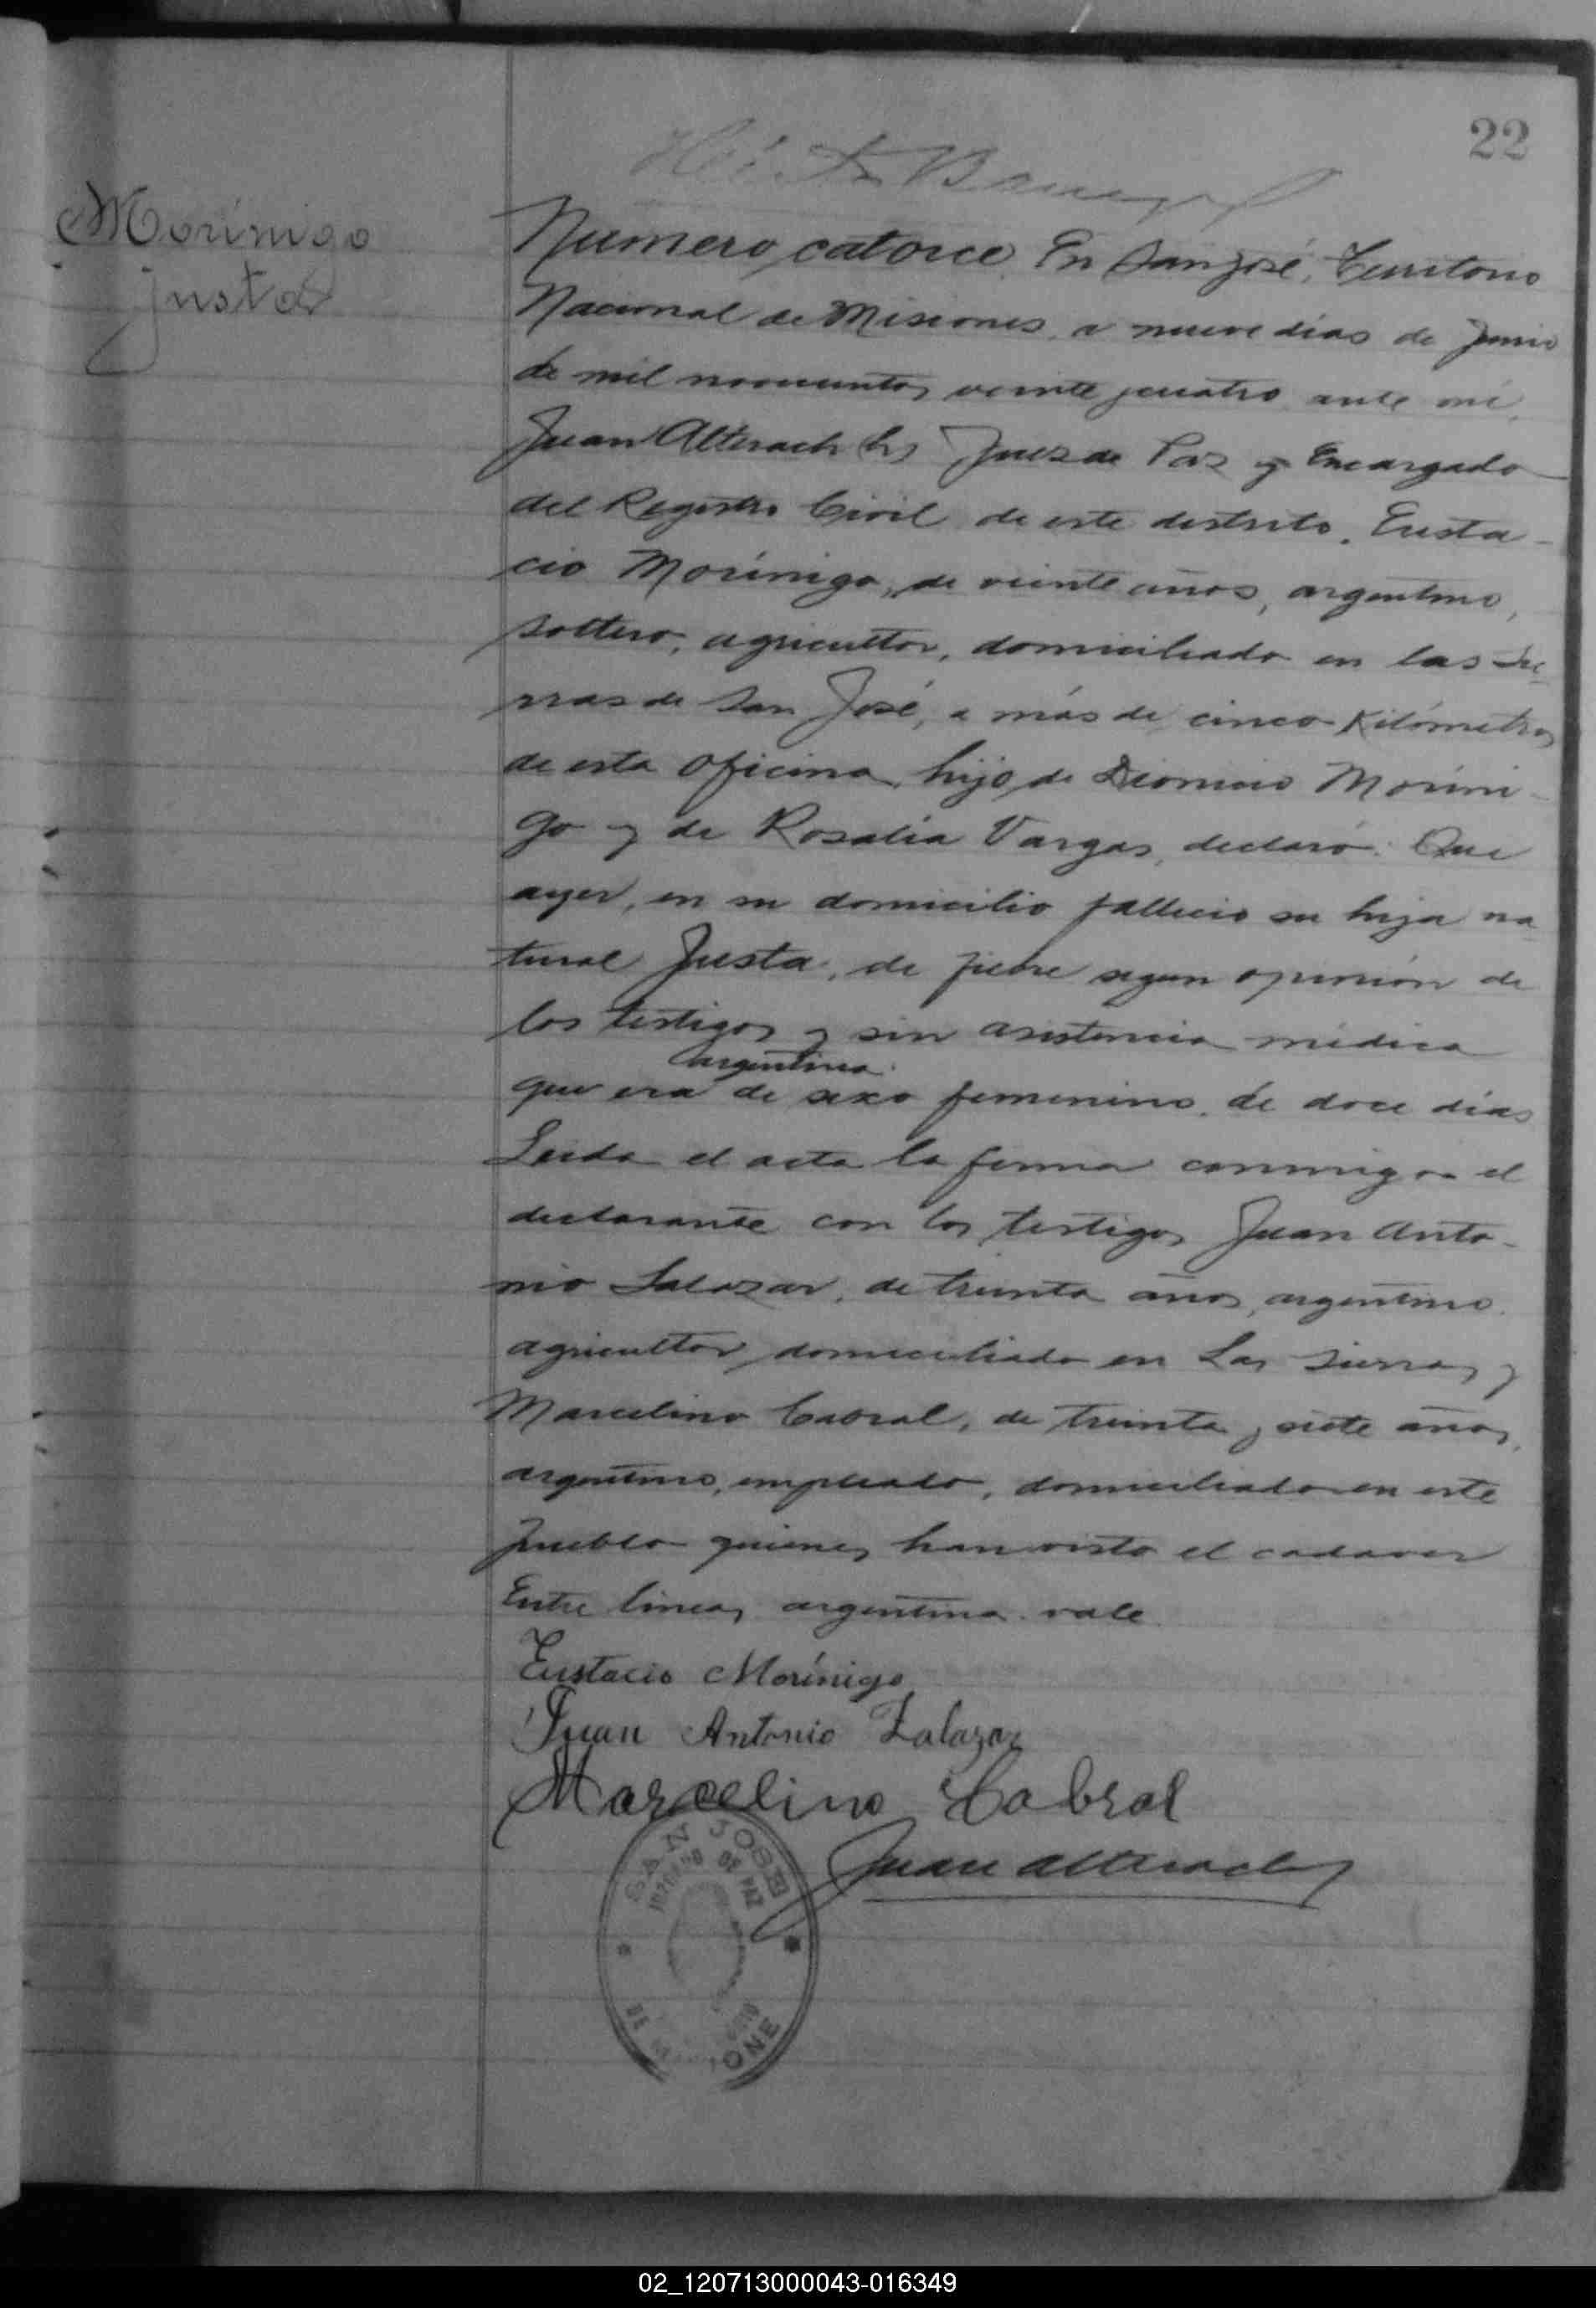 22
Morínigo
Justa
Numero catorce. En San José, Territorio
Nacional de Misiones, a nueve dias de Junio
de mil novecientos veinte y cuatro ante mí,
Juan Alterach (h) Juez de Paz y Encargado
del Registro Civil de este distrito, Eusta-
cio Morínigo, de veinte años, argentino,
soltero, agricultor, domiciliado en las Sie-
rras de San José, a más de cinco Kilómetros
de esta oficina, hijo de Dionicio Moríni-
go y de Rosalía Vargas, declaró: Que
ayer, en su domicilio fallecio su hija na-
tural Justa, de fiebre segun opinión de
los testigos y sin asistencia médica
argentina
que era de sexo femenino, de doce dias
Leida el acta la firma conmigo el
declarante con los testigos Juan Anto-
nio Salazar, de treinta años, argentino,
agricultor domiciliado en Las Sierras y
Marcelino Cabral, de treinta y siete años,
argentino, empleado, domiciliado en este
pueblo quienes han visto el cadaver
Entre lineas argentina vale.
Eustacio Morínigo
Juan Antonio Zalazar
Marcelino Cabral
Juan Alterach
SAN JOSE
JUZGADO DE PAZ
02_120713000043-016349